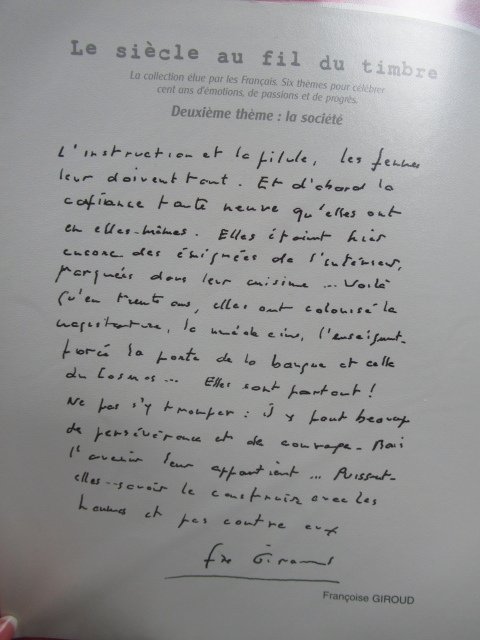 Le siècle au fil du timbre
La collection élue par les Français. Six thèmes pour célébrer
cent ans d'émotions, de passions et de progrès.
Deuxième thème : la société
L'instruction et la pilule, les femmes
leur doivent tant. Et d'abord la
confiance toute neuve qu'elles ont
en elles-mêmes. Elles étaient hier
encore des émigrées de l'intérieur,
parquées dans leur cuisine ... Voilà
qu'en trente ans, elles ont colonisé la
magistrature, la médecine, l'enseignt-
forcé la porte de la banque et celle
du Cosmos ... Elles sont partout !
Ne pas s'y tromper : il y faut beaucoup
de persévérance et de courage - Mais
l'avenir leur appartient ... Puissent-
elles - savoir le construire avec les
hommes et pas contre eux
Fse Giroud
Françoise GIROUD